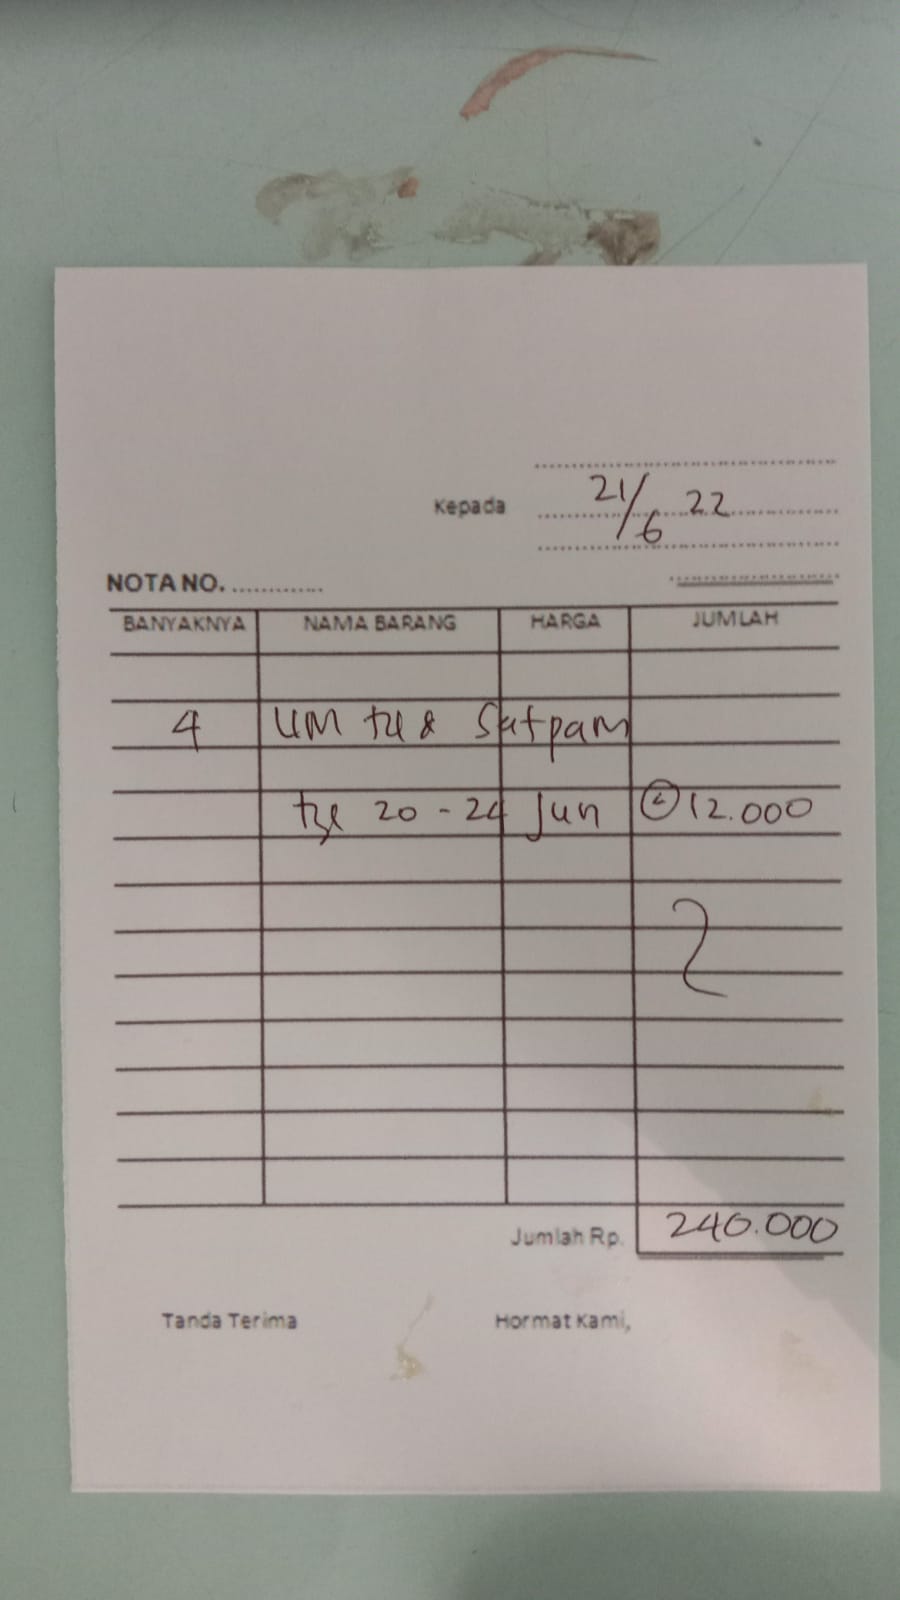 21/6 22
Kepada
NOTA NO. .............
BANYAKNYA NAMA BARANG HARGA JUMLAH
4 UM TU & Satpam
tgl 20 - 24 Jun @ 12.000
Jumlah Rp. 240.000
Tanda Terima Hormat Kami,